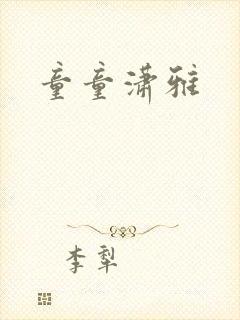 童童潇雅
李犁